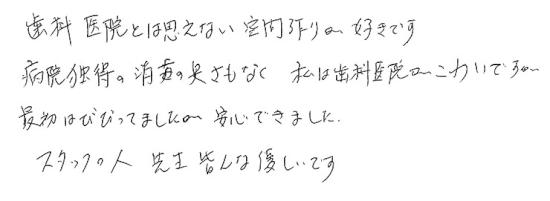 歯科 医院とは思えない 空間作りが 好きです
病院独得の 消毒の臭さもなく 私は歯科医院がこわいですが
最初はびびってましたが 安心できました.
スタッフの人 先生 皆んな優しいです